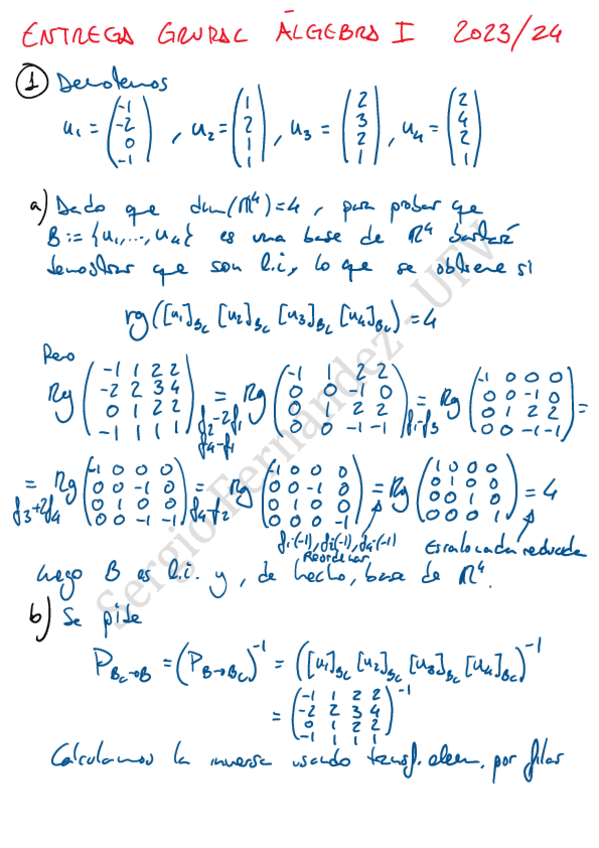 ENTREGA GRUPAL ÁLGEBRA I 2023/24
① Denotemos
u₁ = (-1 -2 0 -1), u₂ = (1 2 1 1), u₃ = (2 3 2 1), u₄ = (2 4 2 1)
a) Dado que dim(ℝ⁴)=4, para probar que
B := {u₁,...,u₄} es una base de ℝ⁴ bastará
demostrar que son l.i., lo que se obtiene si
rg([u₁]_Bc [u₂]_Bc [u₃]_Bc [u₄]_Bc) = 4
Pero
Rg (-1 1 2 2 / -2 2 3 4 / 0 1 2 2 / -1 1 1 1) = Rg (-1 1 2 2 / 0 0 -1 0 / 0 1 2 2 / 0 0 -1 -1) = Rg (-1 0 0 0 / 0 0 -1 0 / 0 1 2 2 / 0 0 -1 -1) =
f₂-2f₁ f₄-f₁ f₁-f₃
= Rg (-1 0 0 0 / 0 0 -1 0 / 0 1 0 0 / 0 0 -1 -1) = Rg (-1 0 0 0 / 0 0 -1 0 / 0 1 0 0 / 0 0 0 -1) = Rg (1 0 0 0 / 0 1 0 0 / 0 0 1 0 / 0 0 0 1) = 4
f₃+2f₄ f₄-f₂ f₁·(-1), f₂(-1), f₄·(-1)
Reordenar
Escalonada reducida
Luego B es l.i. y, de hecho, base de ℝ⁴.
b) Se pide
P_Bc→B = (P_B→Bc)⁻¹ = ([u₁]_Bc [u₂]_Bc [u₃]_Bc [u₄]_Bc)⁻¹
= (-1 1 2 2 / -2 2 3 4 / 0 1 2 2 / -1 1 1 1)⁻¹
Calculamos la inversa usando transf. elem. por filas
Sergio Fernandez - UFV